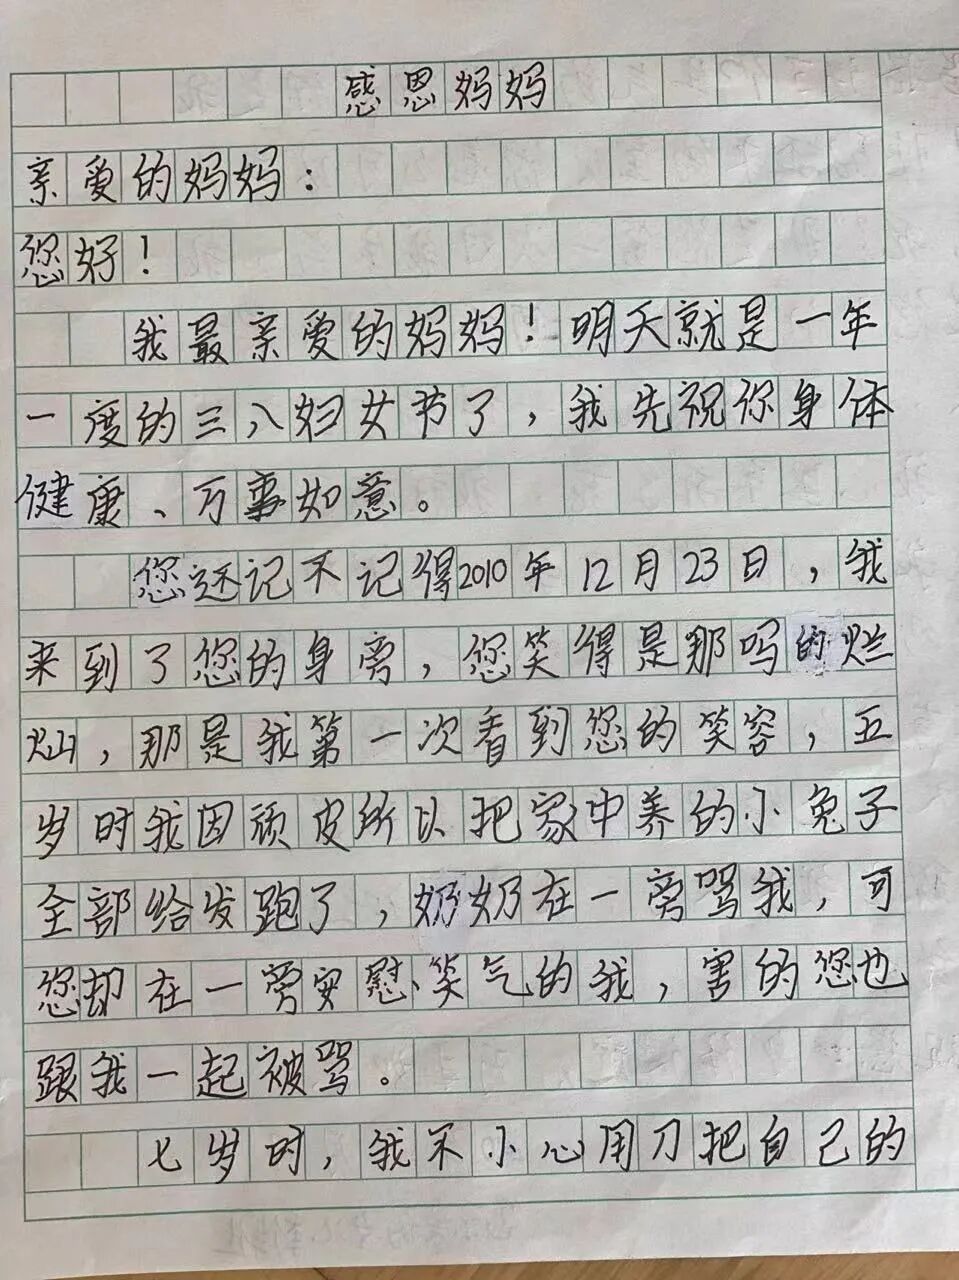 感恩妈妈
亲爱的妈妈：
您好！
我最亲爱的妈妈！明天就是一年
一度的三八妇女节了，我先祝你身体
健康、万事如意。
您还记不记得2010年12月23日，我
来到了您的身旁，您笑得是那吗的烂
灿，那是我第一次看到您的笑容，五
岁时我因顽皮所以把家中养的小兔子
全部给发跑了，奶奶在一旁骂我，可
您却在一旁安慰笑气的我，害的您也
跟我一起被骂。
七岁时，我不小心用刀把自己的